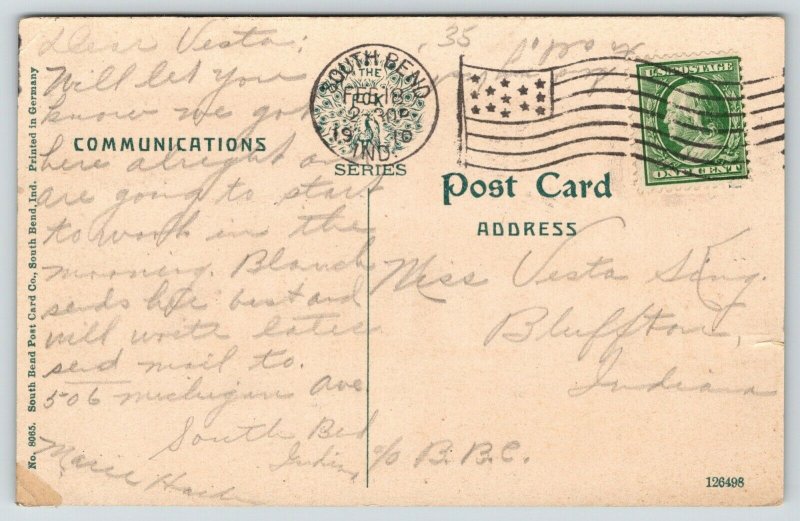 Dear Vesta:
Will let you
know we got
here alright and
are going to start
to work in the
morning. Blanch
sends her best and
will write later
send mail to.
506 Michigan Ave.
South Bend
Indiana
COMMUNICATIONS
No. 8065. South Bend Post Card Co., South Bend, Ind. Printed in Germany
35
SOUTH BEND
2-30P
IND.
THE
SERIES
U.S. POSTAGE
ONE CENT
Post Card
ADDRESS
Miss Vesta King.
Bluffton,
Indiana
c/o B.B.C.
126498